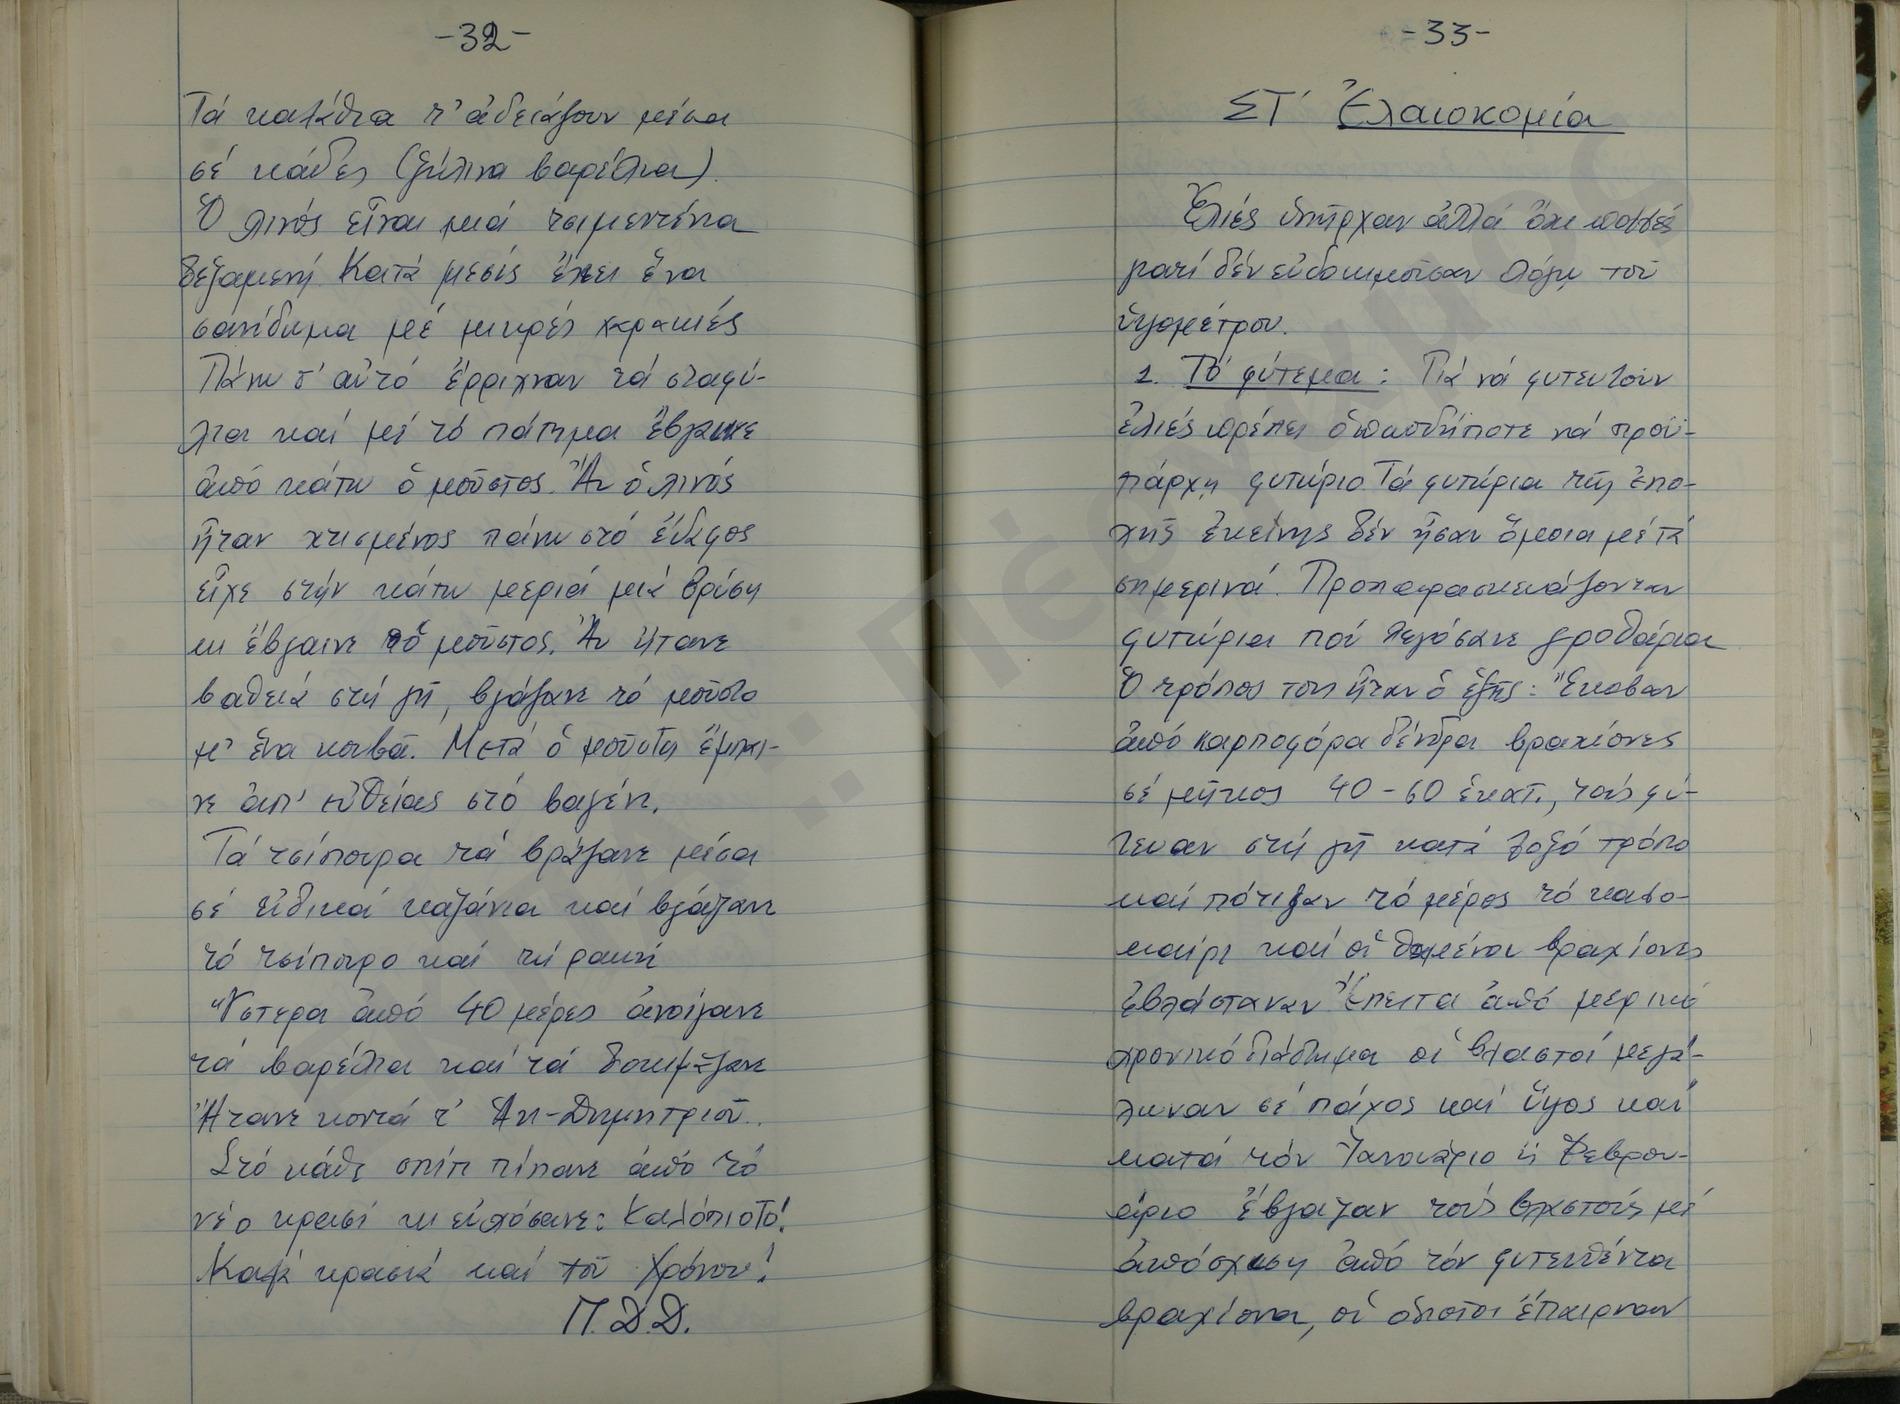 -32-
Τά καλάθια τ' ἀδειάζουν μέσα
σέ κάδες (ξύλινα βαρέλια).
Ὁ ληνός εἶναι μιά τσιμεντένια
δεξαμενή. Κατά μεσίς ἔχει ἕνα
σανίδωμα μέ μικρές χαρακιές
Πάνω σ' αὐτό ἔρριχναν τά σταφύ-
λια καί μέ τό πάτημα ἔβγαινε
ἀπό κάτω ὁ μοῦστος. Ἄν ὁ ληνός
ἦταν χτισμένος πάνω στό ἔδαφος
εἶχε στήν κάτω μεριά μιά βρύση
κι ἔβγαινε ὁ μοῦστος. Ἄν ἤτανε
βαθειά στή γῆ, βγάζανε τό μοῦστο
μ' ἕνα κουβᾶ. Μετά ὁ μοῦστος ἔμπαι-
νε ἀπ' εὐθείας στό βαγένι.
Τά τσίπουρα τά βράζανε μέσα
σέ εἰδικά καζάνια καί βγάζανε
τό τσίπουρο καί τή ρακή
Ὕστερα ἀπό 40 μέρες ἀνοίγανε
τά βαρέλια καί τά δοκιμάζανε
Ἤτανε κοντά τ' Ἁη-Δημητριοῦ.
Στό κάθε σπίτι πίνανε ἀπό τό
νέο κρασί κι εὐχόσανε: Καλόπιοτο!
Καλά κρασιά καί τοῦ Χρόνου!
Π.Δ.Δ.
-33-
ΣΤ' Ἐλαιοκομία
Ἐλιές ὑπῆρχαν ἀλλά ὄχι πολλές
γιατί δέν εὐδοκιμοῦσαν λόγω τοῦ
ὑψομέτρου.
1. Τό φύτεμα: Γιά νά φυτευτοῦν
ἐλιές πρέπει ὁπωσδήποτε νά προϋ-
πάρχη φυτώριο. Τά φυτώρια τῆς ἐπο-
χῆς ἐκείνης δέν ἦσαν ὅμοια μέ τά
σημερινά. Προπαρασκευάζονταν
φυτώρια πού λεγόσανε γροθάρια
Ὁ τρόπος τους ἦταν ὁ ἑξῆς: Ἔκοβαν
ἀπό καρποφόρα δένδρα βραχίονες
σέ μῆκος 40-60 ἑκατ., τούς φύ-
τευαν στή γῆ κατά λοξό τρόπο
καί πότιζαν τό μέρος τό καλο-
καίρι καί οἱ θαμένοι βραχίονες
ἐβλάσταναν. Ἔπειτα ἀπό μερικό
χρονικό διάστημα οἱ βλαστοί μεγά-
λωναν σέ πάχος καί ὕψος καί
κατά τόν Ἰανουάριο ἤ Φεβρου-
άριο ἔβγαζαν τούς βλαστούς μέ
ἀπόσχιση ἀπό τόν φυτευθέντα
βραχίονα, οἱ ὁποῖοι ἔπαιρναν